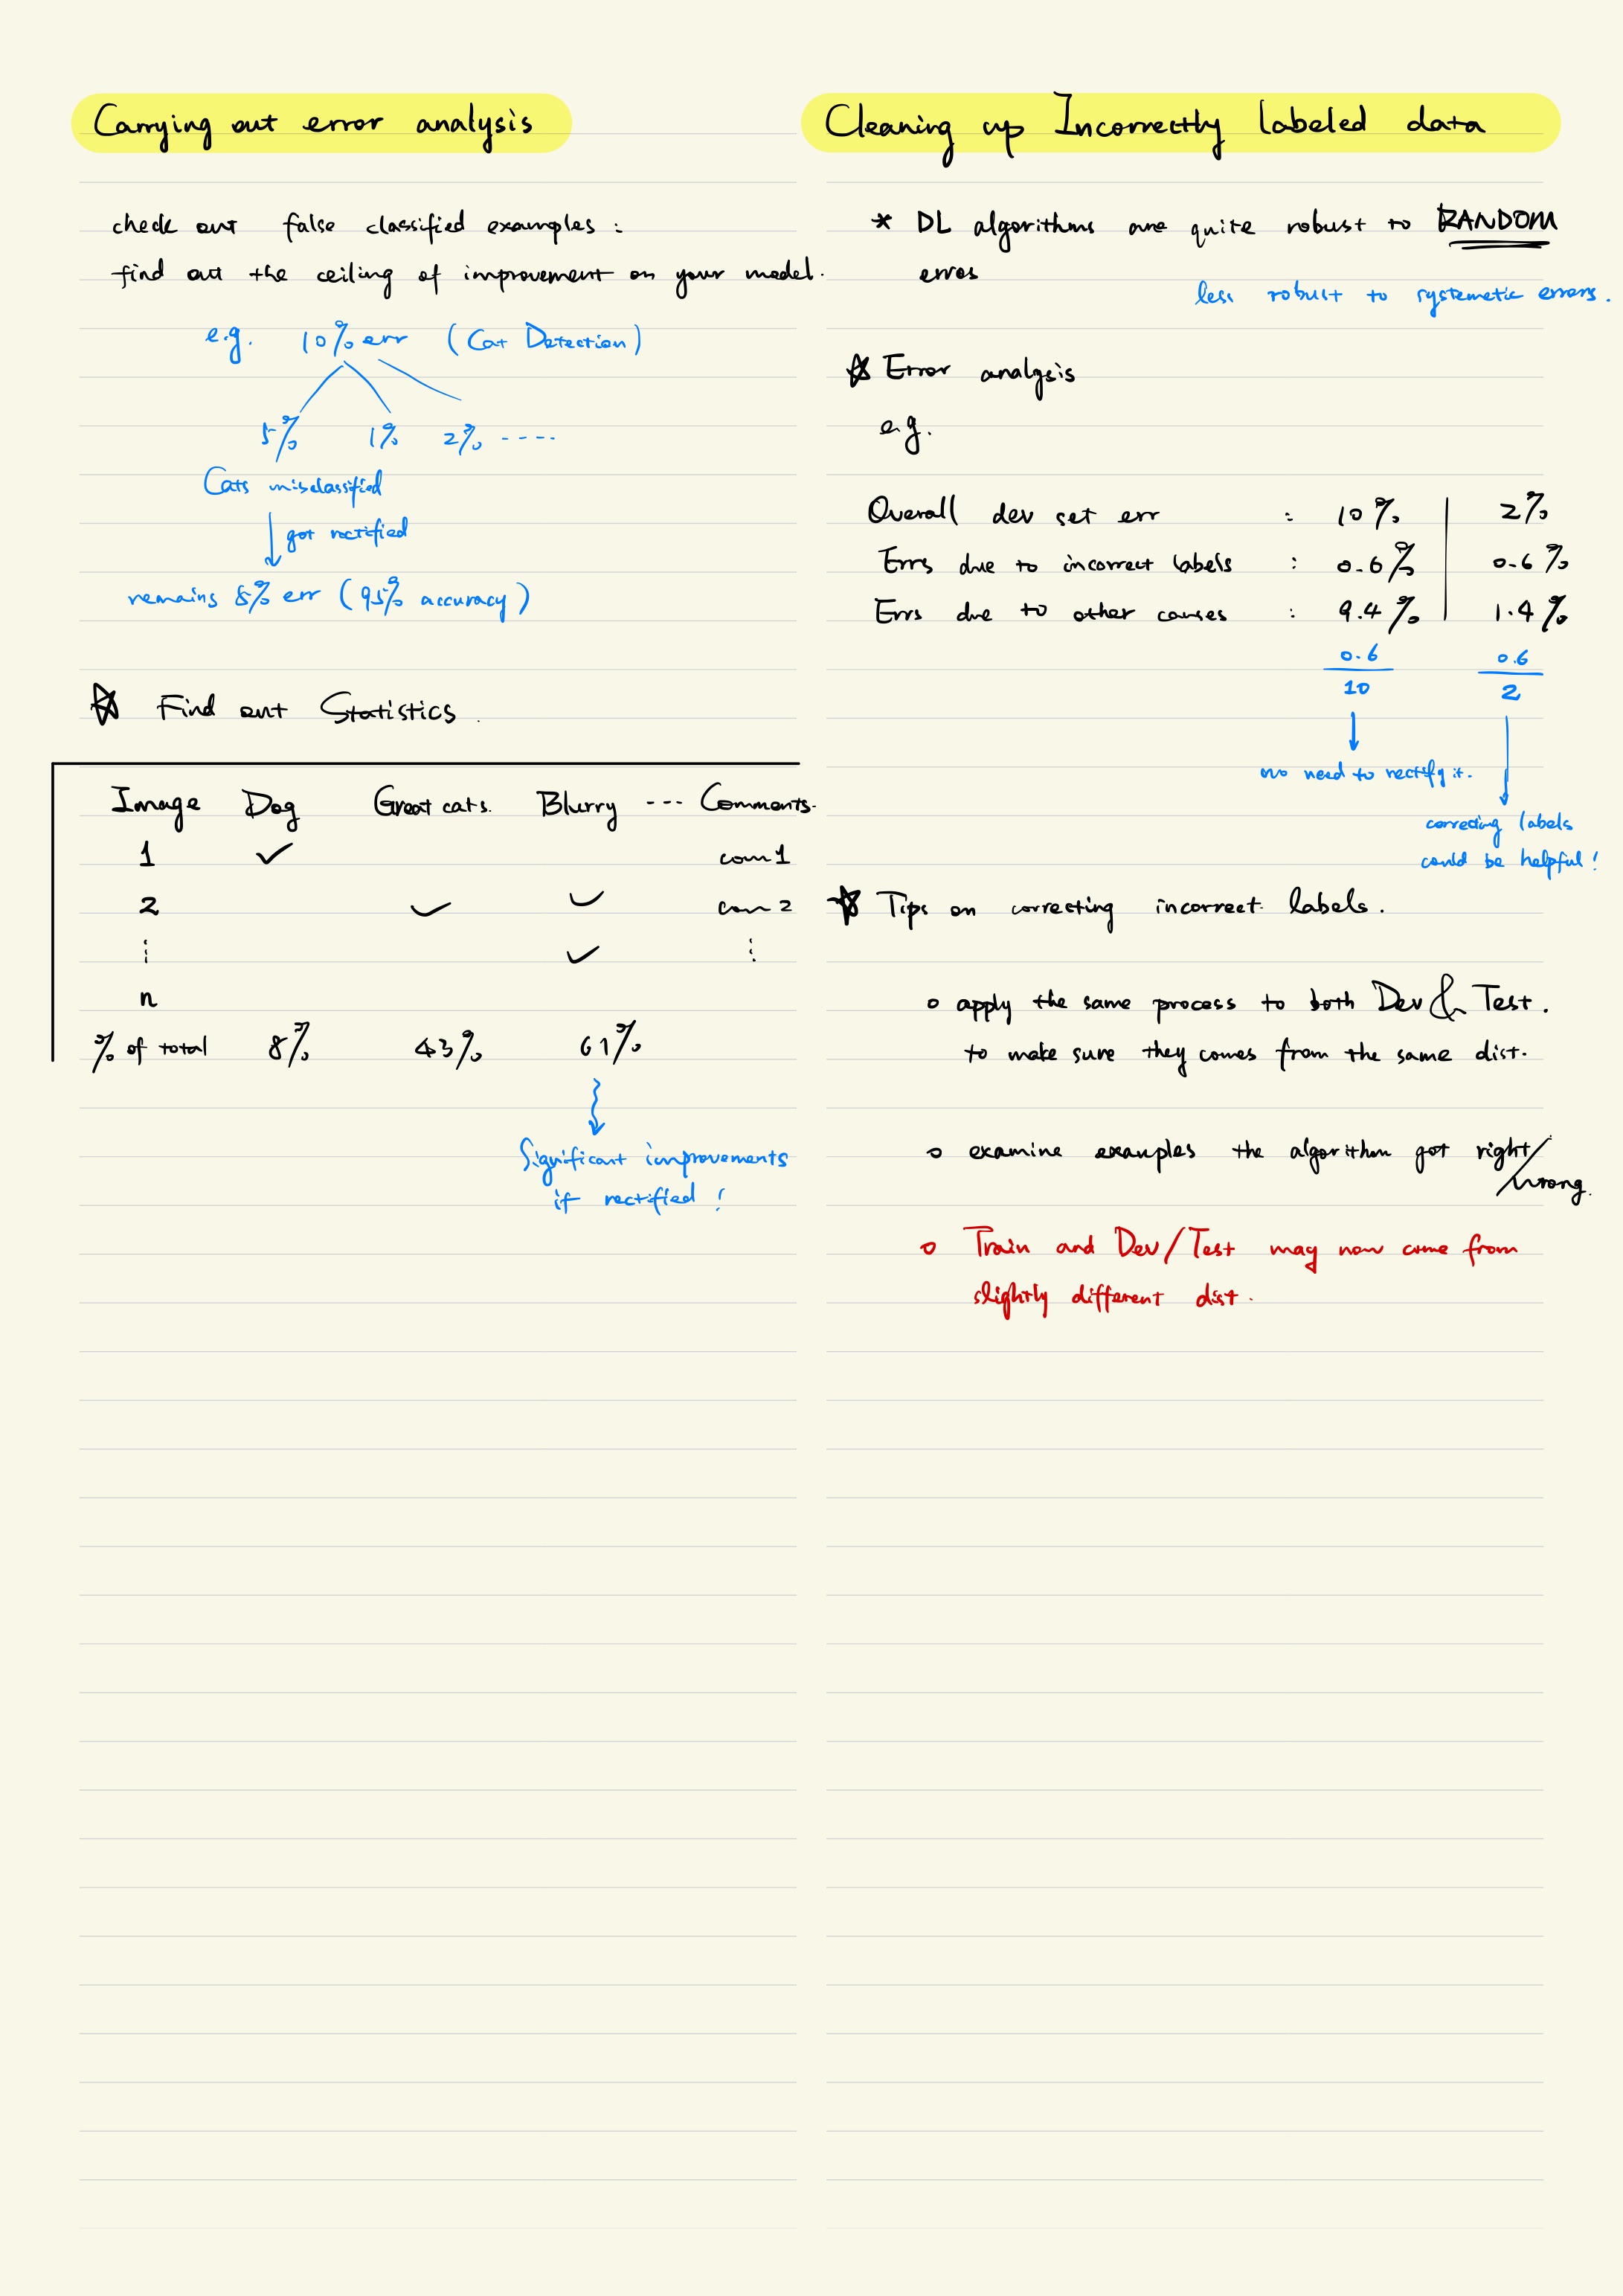 Carrying out error analysis
check out false classified examples :
find out the ceiling of improvement on your model.
e.g. 10% err (Cat Detection)
5% 1% 2% ----
Cats misclassified
got rectified
remains 5% err (95% accuracy)
Find out Statistics.
Image Dog Great cats. Blurry --- Comments.
1 ✓ com 1
2 ✓ ✓ com 2
⋮ ✓ ⋮
n
% of total 8% 43% 61%
Significant improvements
if rectified !
Cleaning up Incorrectly labeled data
* DL algorithms are quite robust to RANDOM
erros
less robust to systemetic errors.
Error analysis
e.g.
Overall dev set err : 10% | 2%
Errs due to incorrect labels : 0.6% | 0.6%
Errs due to other causes : 9.4% | 1.4%
0.6 0.6
10 2
no need to rectify it.
correcting labels
could be helpful !
Tips on correcting incorrect labels.
o apply the same process to both Dev & Test.
to make sure they comes from the same dist.
o examine examples the algorithm got right/
wrong.
o Train and Dev/Test may now come from
slightly different dist.